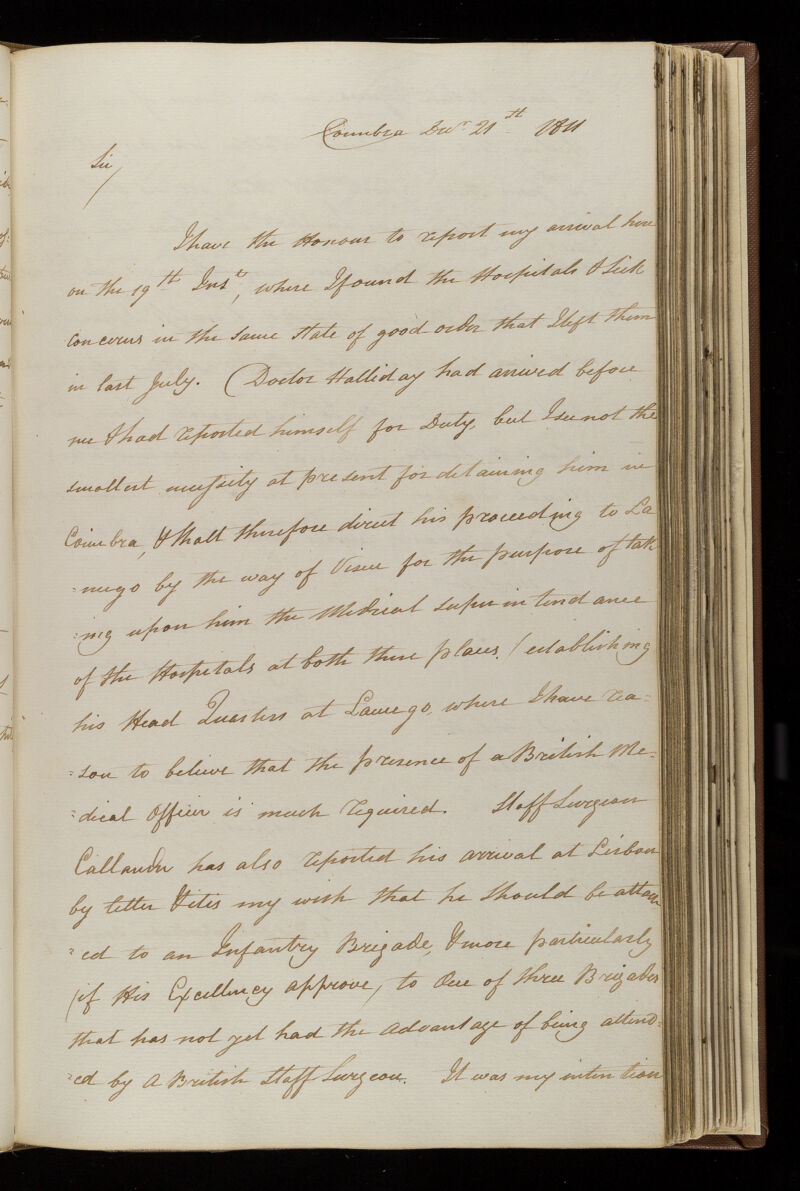 Coimbra Decr. 21st 1811
Sir/
I have the Honour to report my arrival here
on the 19th Inst, where I found the Hospitals & Sick
concerns in the same state of good order that I left them
in last July. (Doctor Halliday had arrived before
me & had reported himself for Duty, but I see not the
smallest necessity at present for detaining him in
Coimbra, & shall therefore direct his proceeding to La
:mego by the way of Viseu for the purpose of tak
:ing upon him the Medical superintendance
of the Hospitals at both these places, / establishing
his Head Quarters at Lamego, where I have rea:
:son to believe that the presence of a British Me:
:dical Officer is much required. Staff Surgeon
Callander has also reported his arrival at Lisbon
by letter & it is my wish that he should be attach
:ed to an Infantry Brigade, & more particularly
(if His Excellency approve, to One of three Brigades
that has not yet had the advantage of being attend:
:ed by a British Staff Surgeon. It was my intention